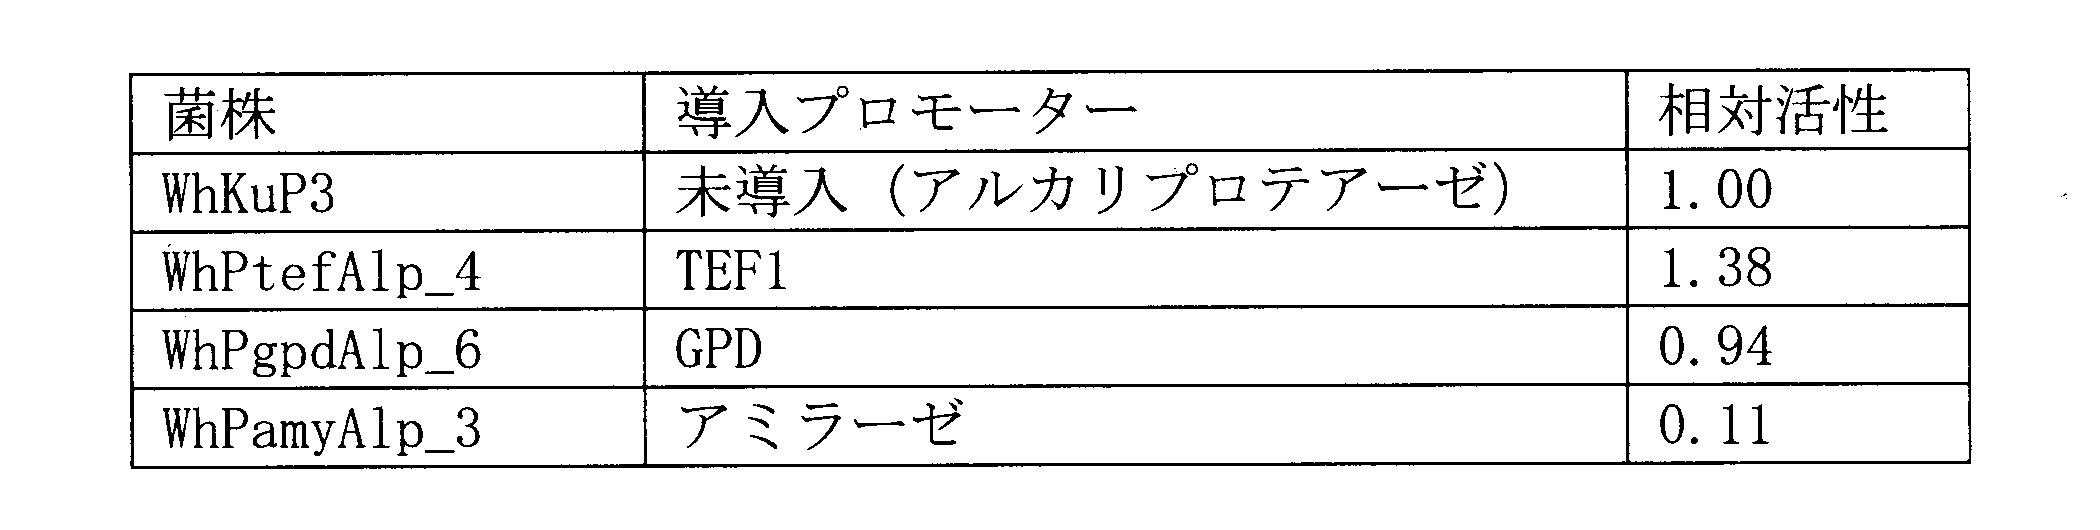 菌株 導入プロモーター 相対活性
WhKuP3 未導入（アルカリプロテアーゼ） 1.00
WhPtefAlp_4 TEF1 1.38
WhPgpdAlp_6 GPD 0.94
WhPamyAlp_3 アミラーゼ 0.11